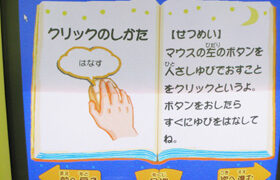 クリックのしかた
はなす
【せつめい】
マウスの左のボタンを
人さしゆびでおすこと
をクリックというよ。
ボタンをおしたら
すぐにゆびをはなして
ね。